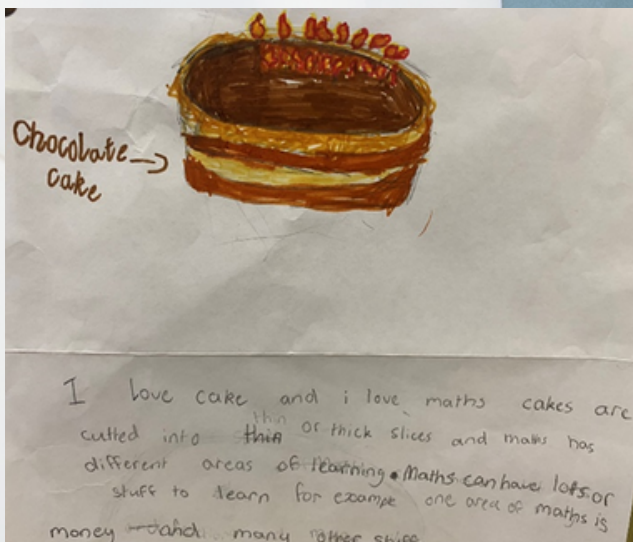 Chocolate
cake
I love cake and i love maths cakes are
thin
cutted into thin or thick slices and maths has
different areas of learning. Maths can have lots or
stuff to learn for exampe one area of maths is
money and many other